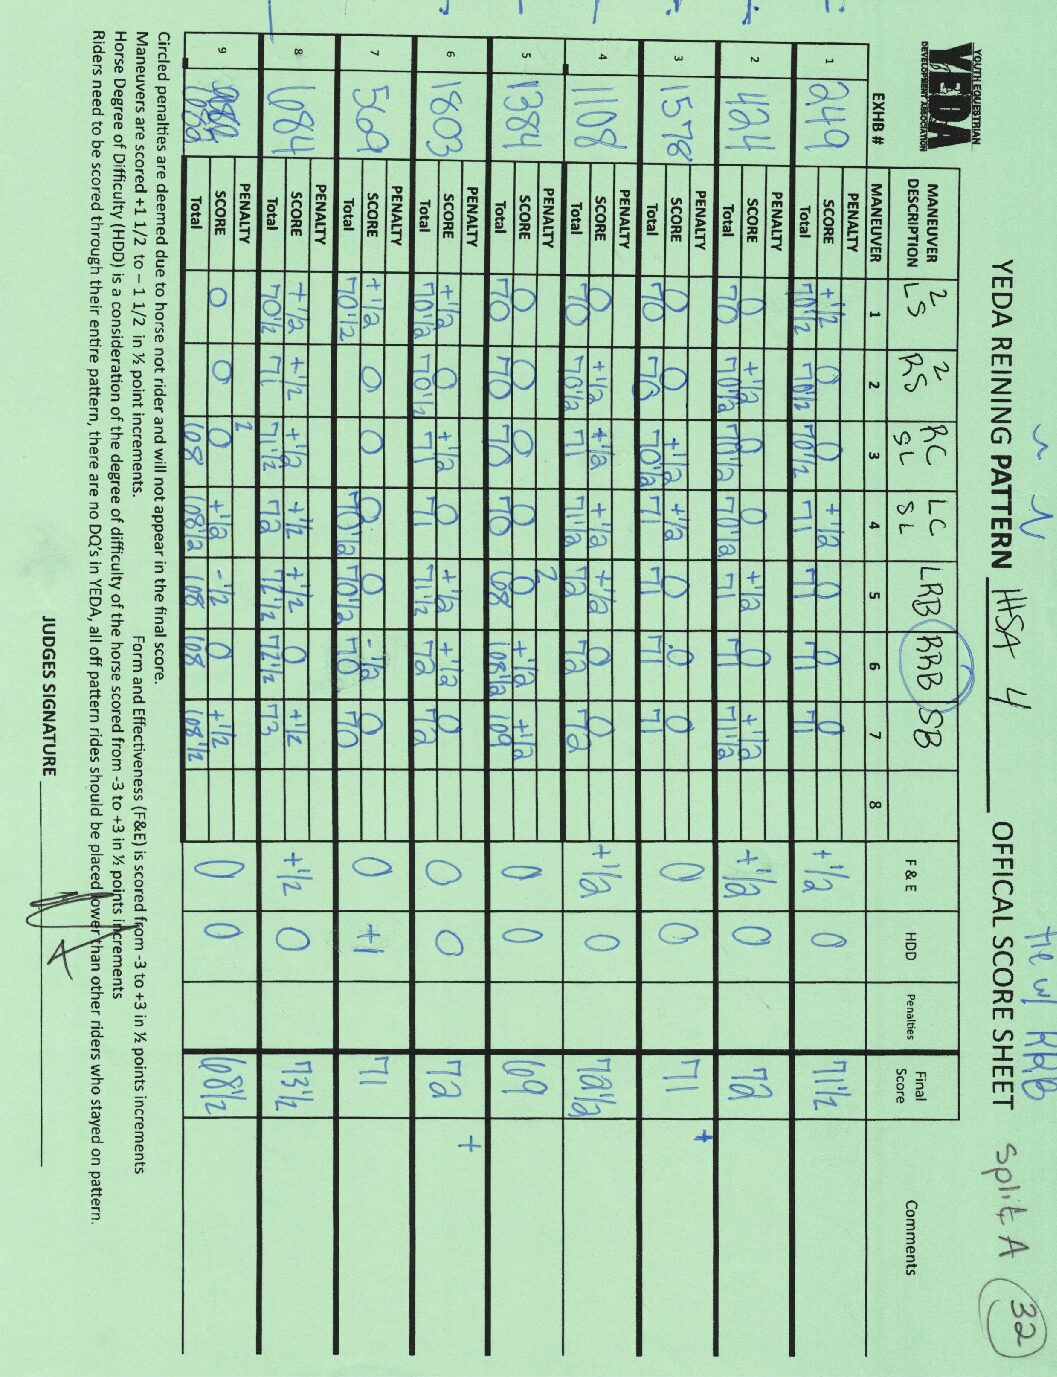 tie w/ RRB
YEDA REINING PATTERN HSA 4 OFFICAL SCORE SHEET Split A 32
YOUTH EQUESTRIAN
YEDA
DEVELOPMENT ASSOCIATION
MANEUVER DESCRIPTION 2 LS 2 RS RC SL LC SL LRB RRB SB F & E HDD Penalties Final Score Comments
EXHB # MANEUVER 1 2 3 4 5 6 7 8
1 249
PENALTY
SCORE +1/2 0 0 +1/2 0 0 0 +1/2 0 71 1/2
Total 70 1/2 70 1/2 70 1/2 71 71 71 71
2 424
PENALTY
SCORE 0 +1/2 0 0 +1/2 0 +1/2 +1/2 0 72
Total 70 70 1/2 70 1/2 70 1/2 71 71 71 1/2
3 1578
PENALTY
SCORE 0 0 +1/2 +1/2 0 0 0 0 0 71 +
Total 70 70 70 1/2 71 71 71 71
4 1108
PENALTY
SCORE 0 +1/2 +1/2 +1/2 +1/2 0 0 +1/2 0 72 1/2
Total 70 70 1/2 71 71 1/2 72 72 72
5 1384
PENALTY 2
SCORE 0 0 0 0 0 +1/2 +1/2 0 0 69
Total 70 70 70 70 68 68 1/2 69
6 1803
PENALTY +
SCORE +1/2 0 +1/2 0 +1/2 +1/2 0 0 0 72
Total 70 1/2 70 1/2 71 71 71 1/2 72 72
7 569
PENALTY
SCORE +1/2 0 0 0 0 -1/2 0 0 +1 71
Total 70 1/2 70 1/2 70 1/2 70 70
8 684
PENALTY
SCORE +1/2 +1/2 +1/2 +1/2 +1/2 0 +1/2 +1/2 0 73 1/2
Total 70 1/2 71 71 1/2 72 72 1/2 72 1/2 73
9
PENALTY 2
SCORE 0 0 0 +1/2 -1/2 0 +1/2 0 0 68 1/2
Total 68 68 1/2 68 68 68 1/2
Circled penalties are deemed due to horse not rider and will not appear in the final score.
Maneuvers are scored +1 1/2 to – 1 1/2 in ½ point increments. Form and Effectiveness (F&E) is scored from -3 to +3 in ½ points increments
Horse Degree of Difficulty (HDD) is a consideration of the degree of difficulty of the horse scored from -3 to +3 in ½ points increments
Riders need to be scored through their entire pattern, there are no DQ's in YEDA, all off pattern rides should be placed lower than other riders who stayed on pattern.
JUDGES SIGNATURE